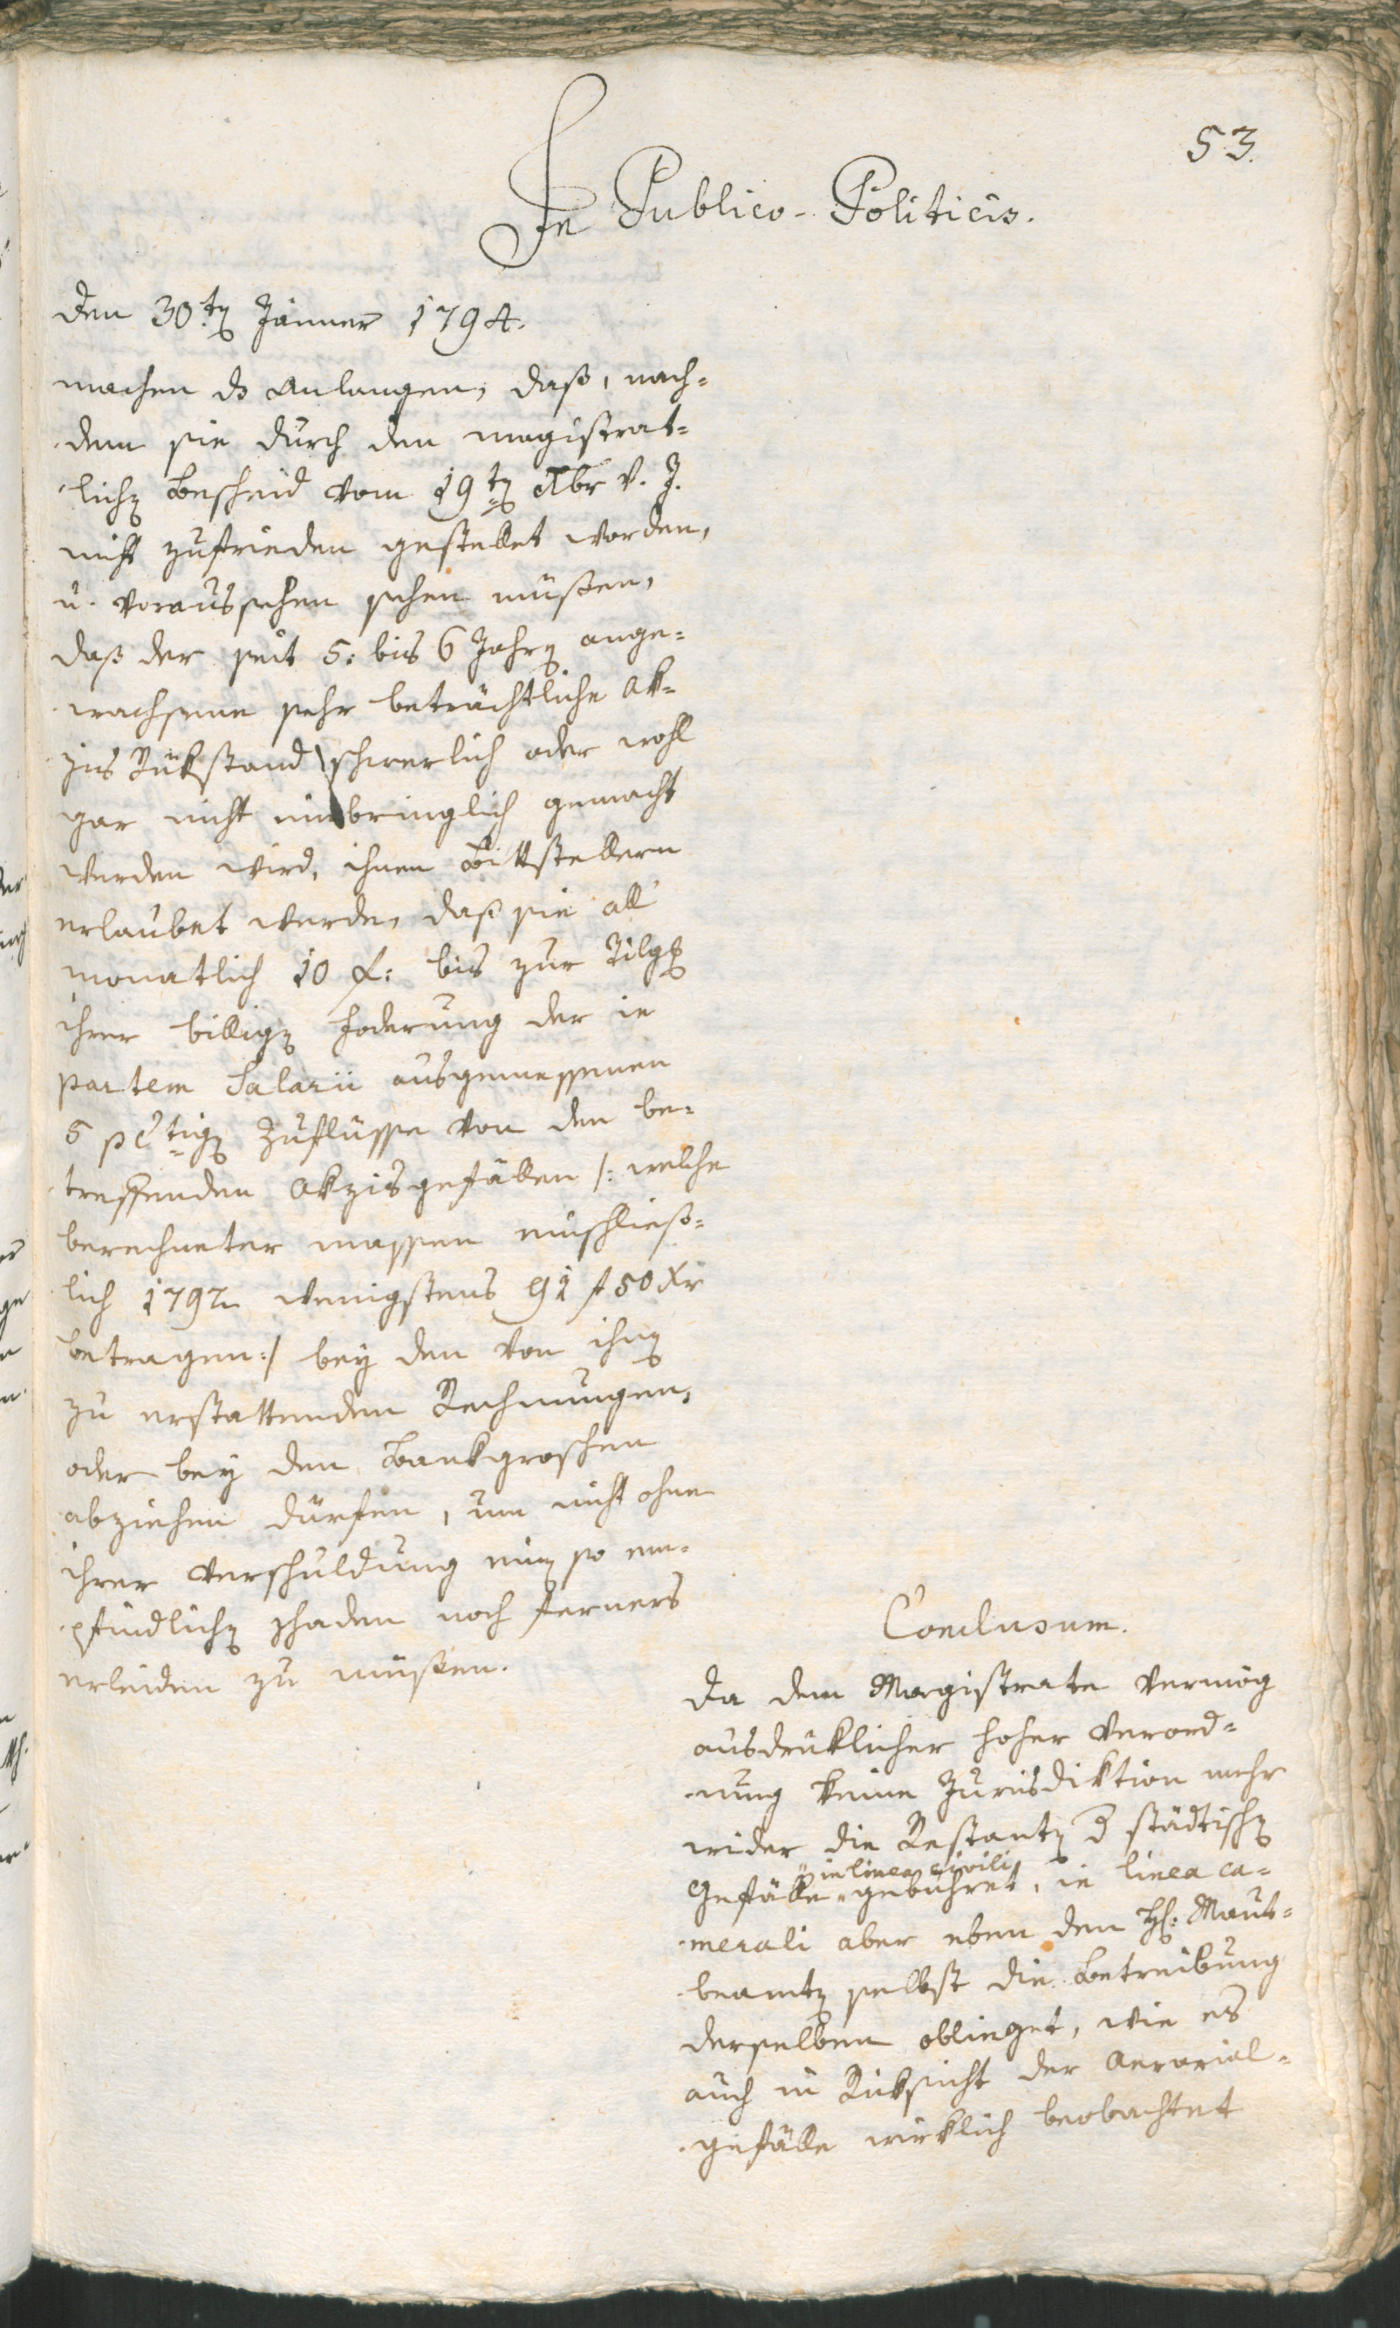 53.
In Publico-Politicis.
Den 30ten Jänner 1794.
machen ds Anlangen, daß, nach=
dem sie durch den magistrat=
lichen Bescheid vom 19ten Xbr v. J.
nicht zufrieden gestellet worden,
u. voraussehen sehen müßen,
daß der seit 5: bis 6 Jahren ange=
wachsene sehr beträchtliche Ak=
zis Rükstand schwerlich oder wohl
gar nicht einbringlich gemacht
werden wird, ihnen Bittstellern
erlaubet werde, daß sie all
monatlich 10 f: bis zur Tilgung
ihrer billigen Foderung der in
partem Salarii ausgemessenen
5 pCtigen Zuflüsse von den be=
treffenden Akzisgefällen /: welche
berechneter massen einschließ=
lich 1792 wenigstens 91 f 50 Xr
betragen :/ bey den von ihnen
zu erstattenden Rechnungen,
oder bey den Bankgroschen
abziehen dürfen, um nicht ohne
ihrer Verschuldung einen so em=
pfindlichen schaden noch ferners
erleiden zu müßen.
Conclusum.
Da dem Magistrate vermög
ausdruklicher hoher Verord=
nung keine Jurisdiktion mehr
wider die Restanten der städtischen
in linea civili
Gefälle gebühret, in linea ca=
merali aber eben den H: Maut=
beamten selbst die Betreibung
derselben oblieget, wie es
auch in Riksicht der Aerarial=
gefälle wirklich beobachtet